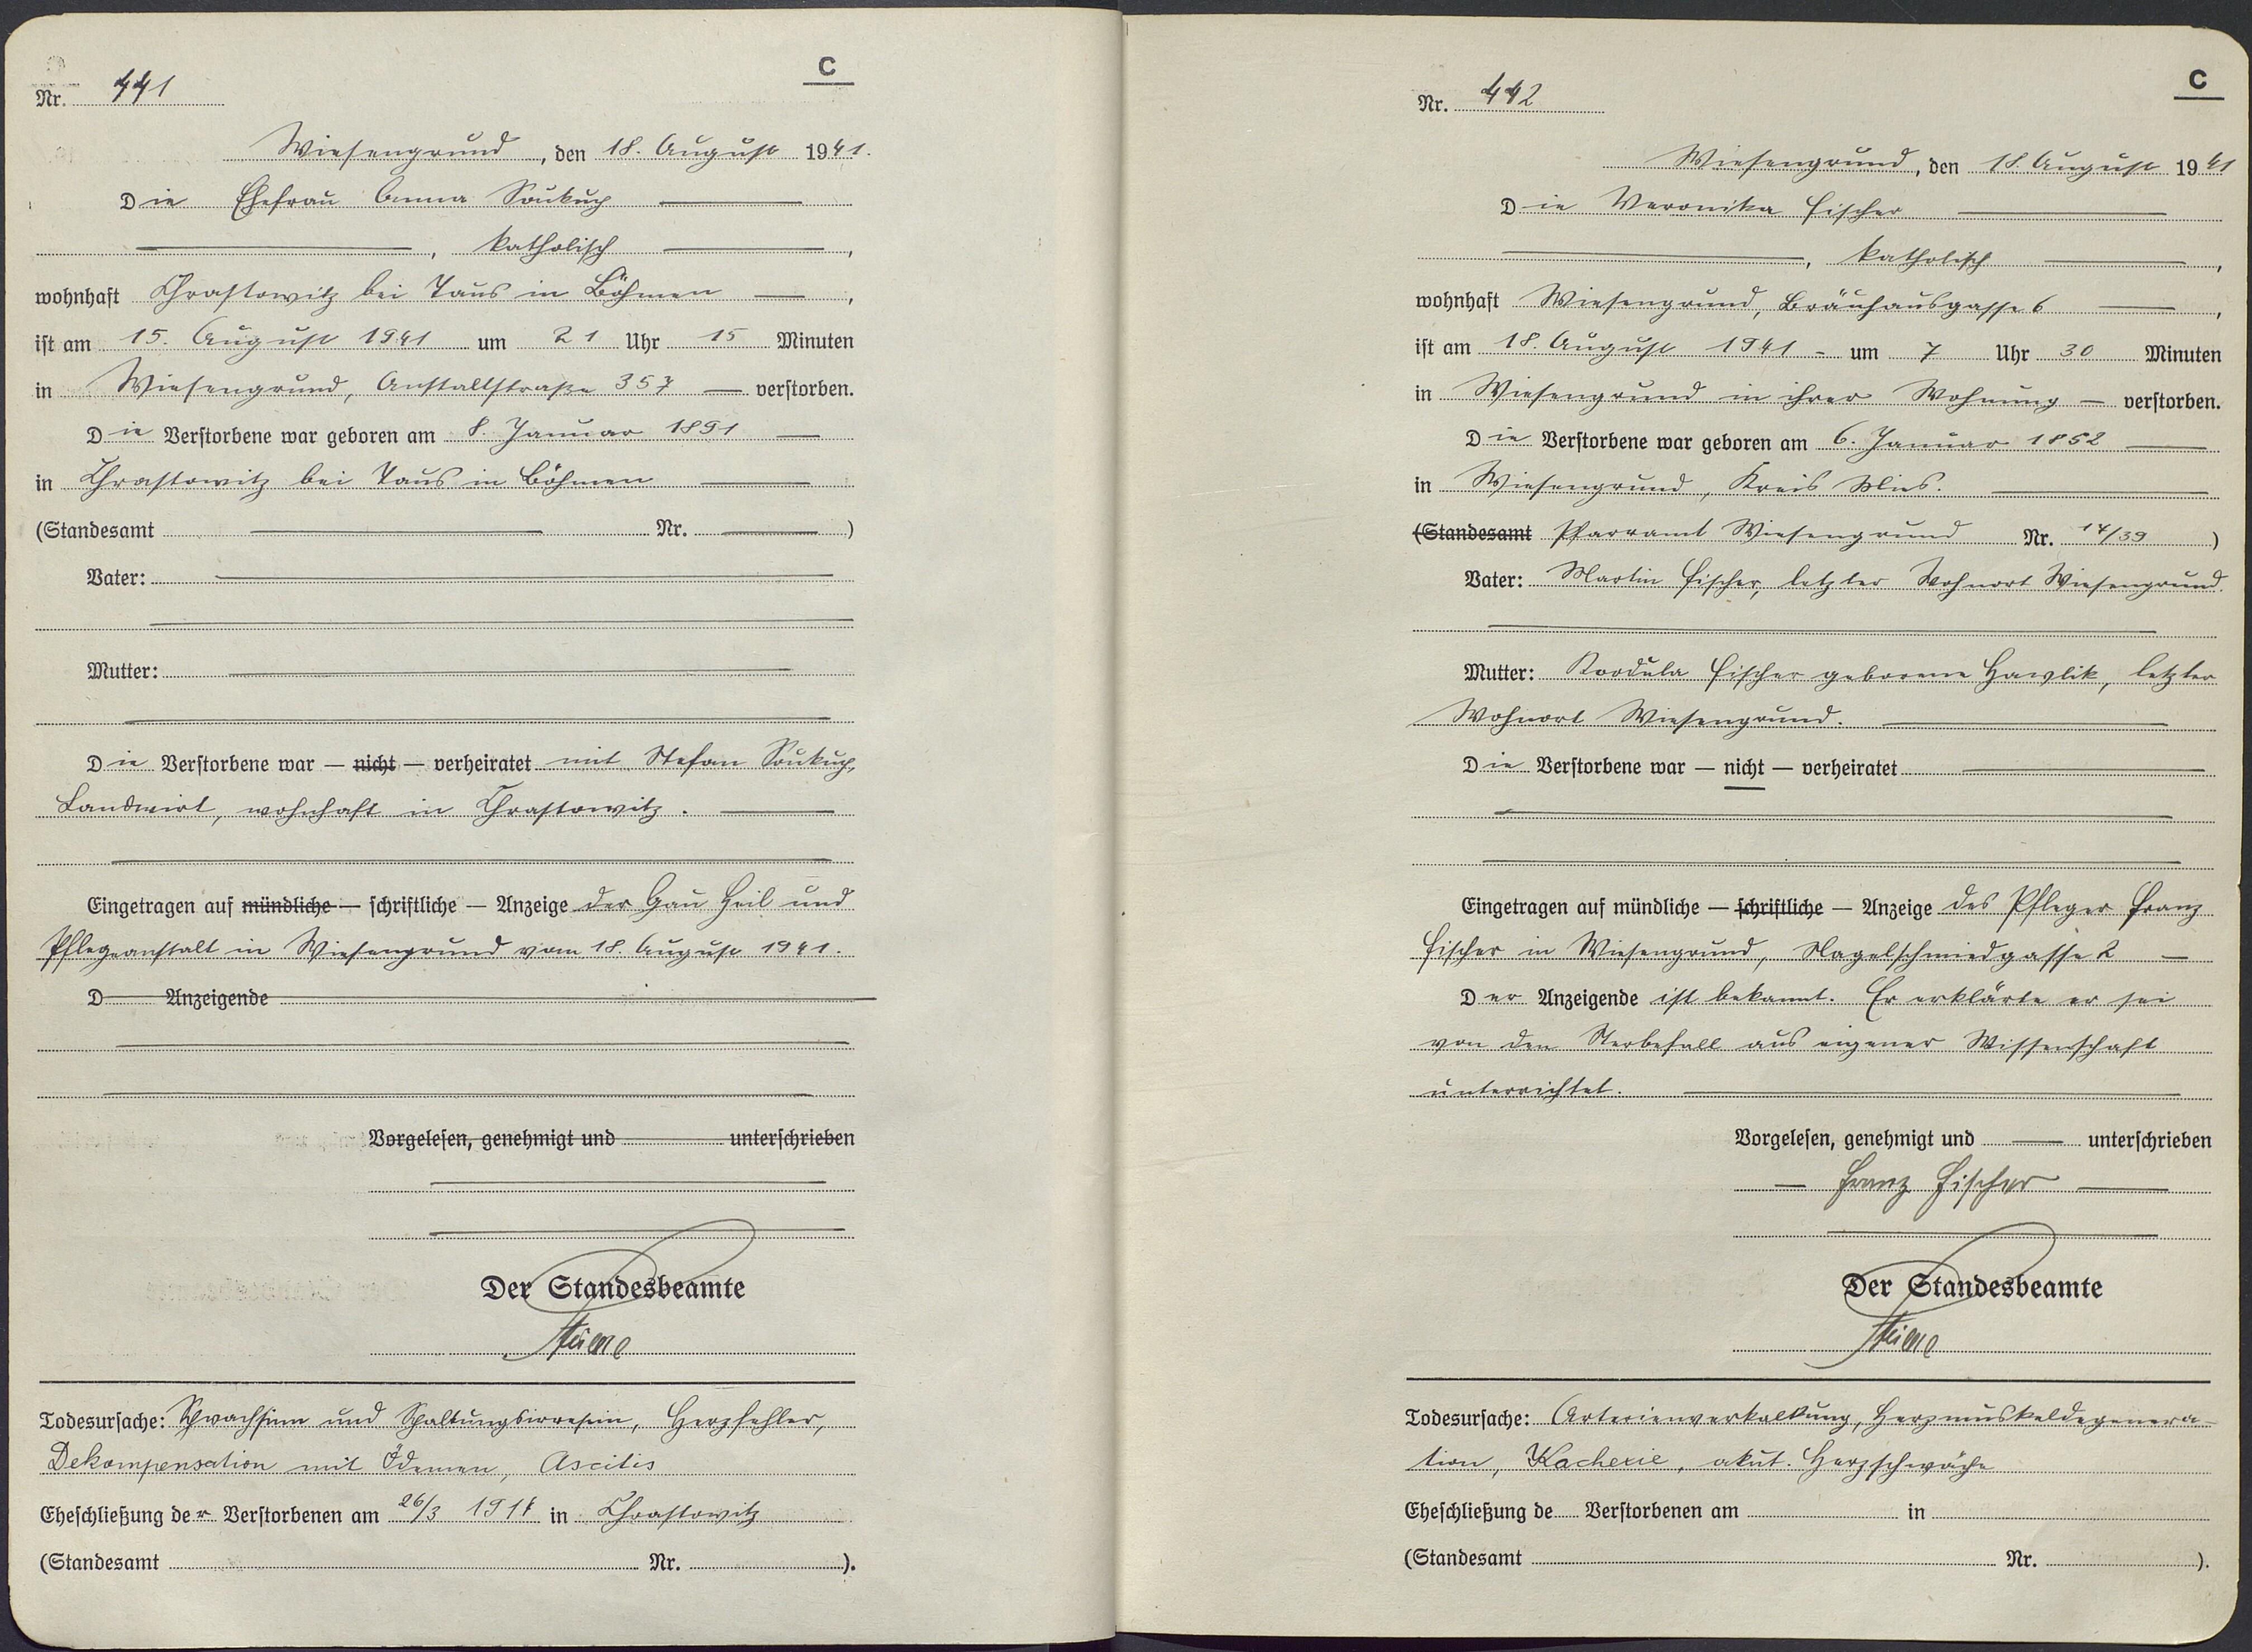 C
Nr. 441
Wiesengrund, den 18. August 1941.
Die Ehefrau Anna Soukup
, katholisch ,
wohnhaft Chrastowitz bei Taus in Böhmen ,
ist am 15. August 1941 um 21 Uhr 15 Minuten
in Wiesengrund, Anstaltstraße 357 verstorben.
Die Verstorbene war geboren am 8. Januar 1891
in Chrastowitz bei Taus in Böhmen
(Standesamt Nr. )
Vater:
Mutter:
Die Verstorbene war — nicht — verheiratet mit Stefan Soukup,
Landwirt, wohnhaft in Chrastowitz.
Eingetragen auf mündliche — schriftliche — Anzeige der Gau Heil und
Pflegeanstalt in Wiesengrund vom 18. August 1941.
D Anzeigende
Vorgelesen, genehmigt und unterschrieben
Der Standesbeamte
Todesursache: Schwachsinn und Spaltungsirresein, Herzfehler,
Dekompensation mit Ödemen, Ascitis
Eheschließung der Verstorbenen am 26/3 1918 in Chrastowitz
(Standesamt Nr. ).
C
Nr. 442
Wiesengrund, den 18. August 1941
Die Veronika Fischer
, katholisch ,
wohnhaft Wiesengrund, Bräuhausgasse 6 ,
ist am 18. August 1941 - um 7 Uhr 30 Minuten
in Wiesengrund in ihrer Wohnung — verstorben.
Die Verstorbene war geboren am 6. Januar 1852
in Wiesengrund, Kreis Mies.
(Standesamt Pfarramt Wiesengrund Nr. 14/39 )
Vater: Martin Fischer, letzter Wohnort Wiesengrund.
Mutter: Kordula Fischer geborene Hawlik, letzter
Wohnort Wiesengrund.
Die Verstorbene war — nicht — verheiratet
Eingetragen auf mündliche — schriftliche — Anzeige des Pfleger Franz
Fischer in Wiesengrund, Nagelschmiedgasse 2 —
Der Anzeigende ist bekannt. Er erklärte er sei
von den Sterbefall aus eigener Wissenschaft
unterrichtet.
Vorgelesen, genehmigt und unterschrieben
Franz Fischer
Der Standesbeamte
Todesursache: Arterienverkalkung, Herzmuskeldegenera-
tion, Kachexie, akut. Herzschwäche
Eheschließung de Verstorbenen am in
(Standesamt Nr. ).